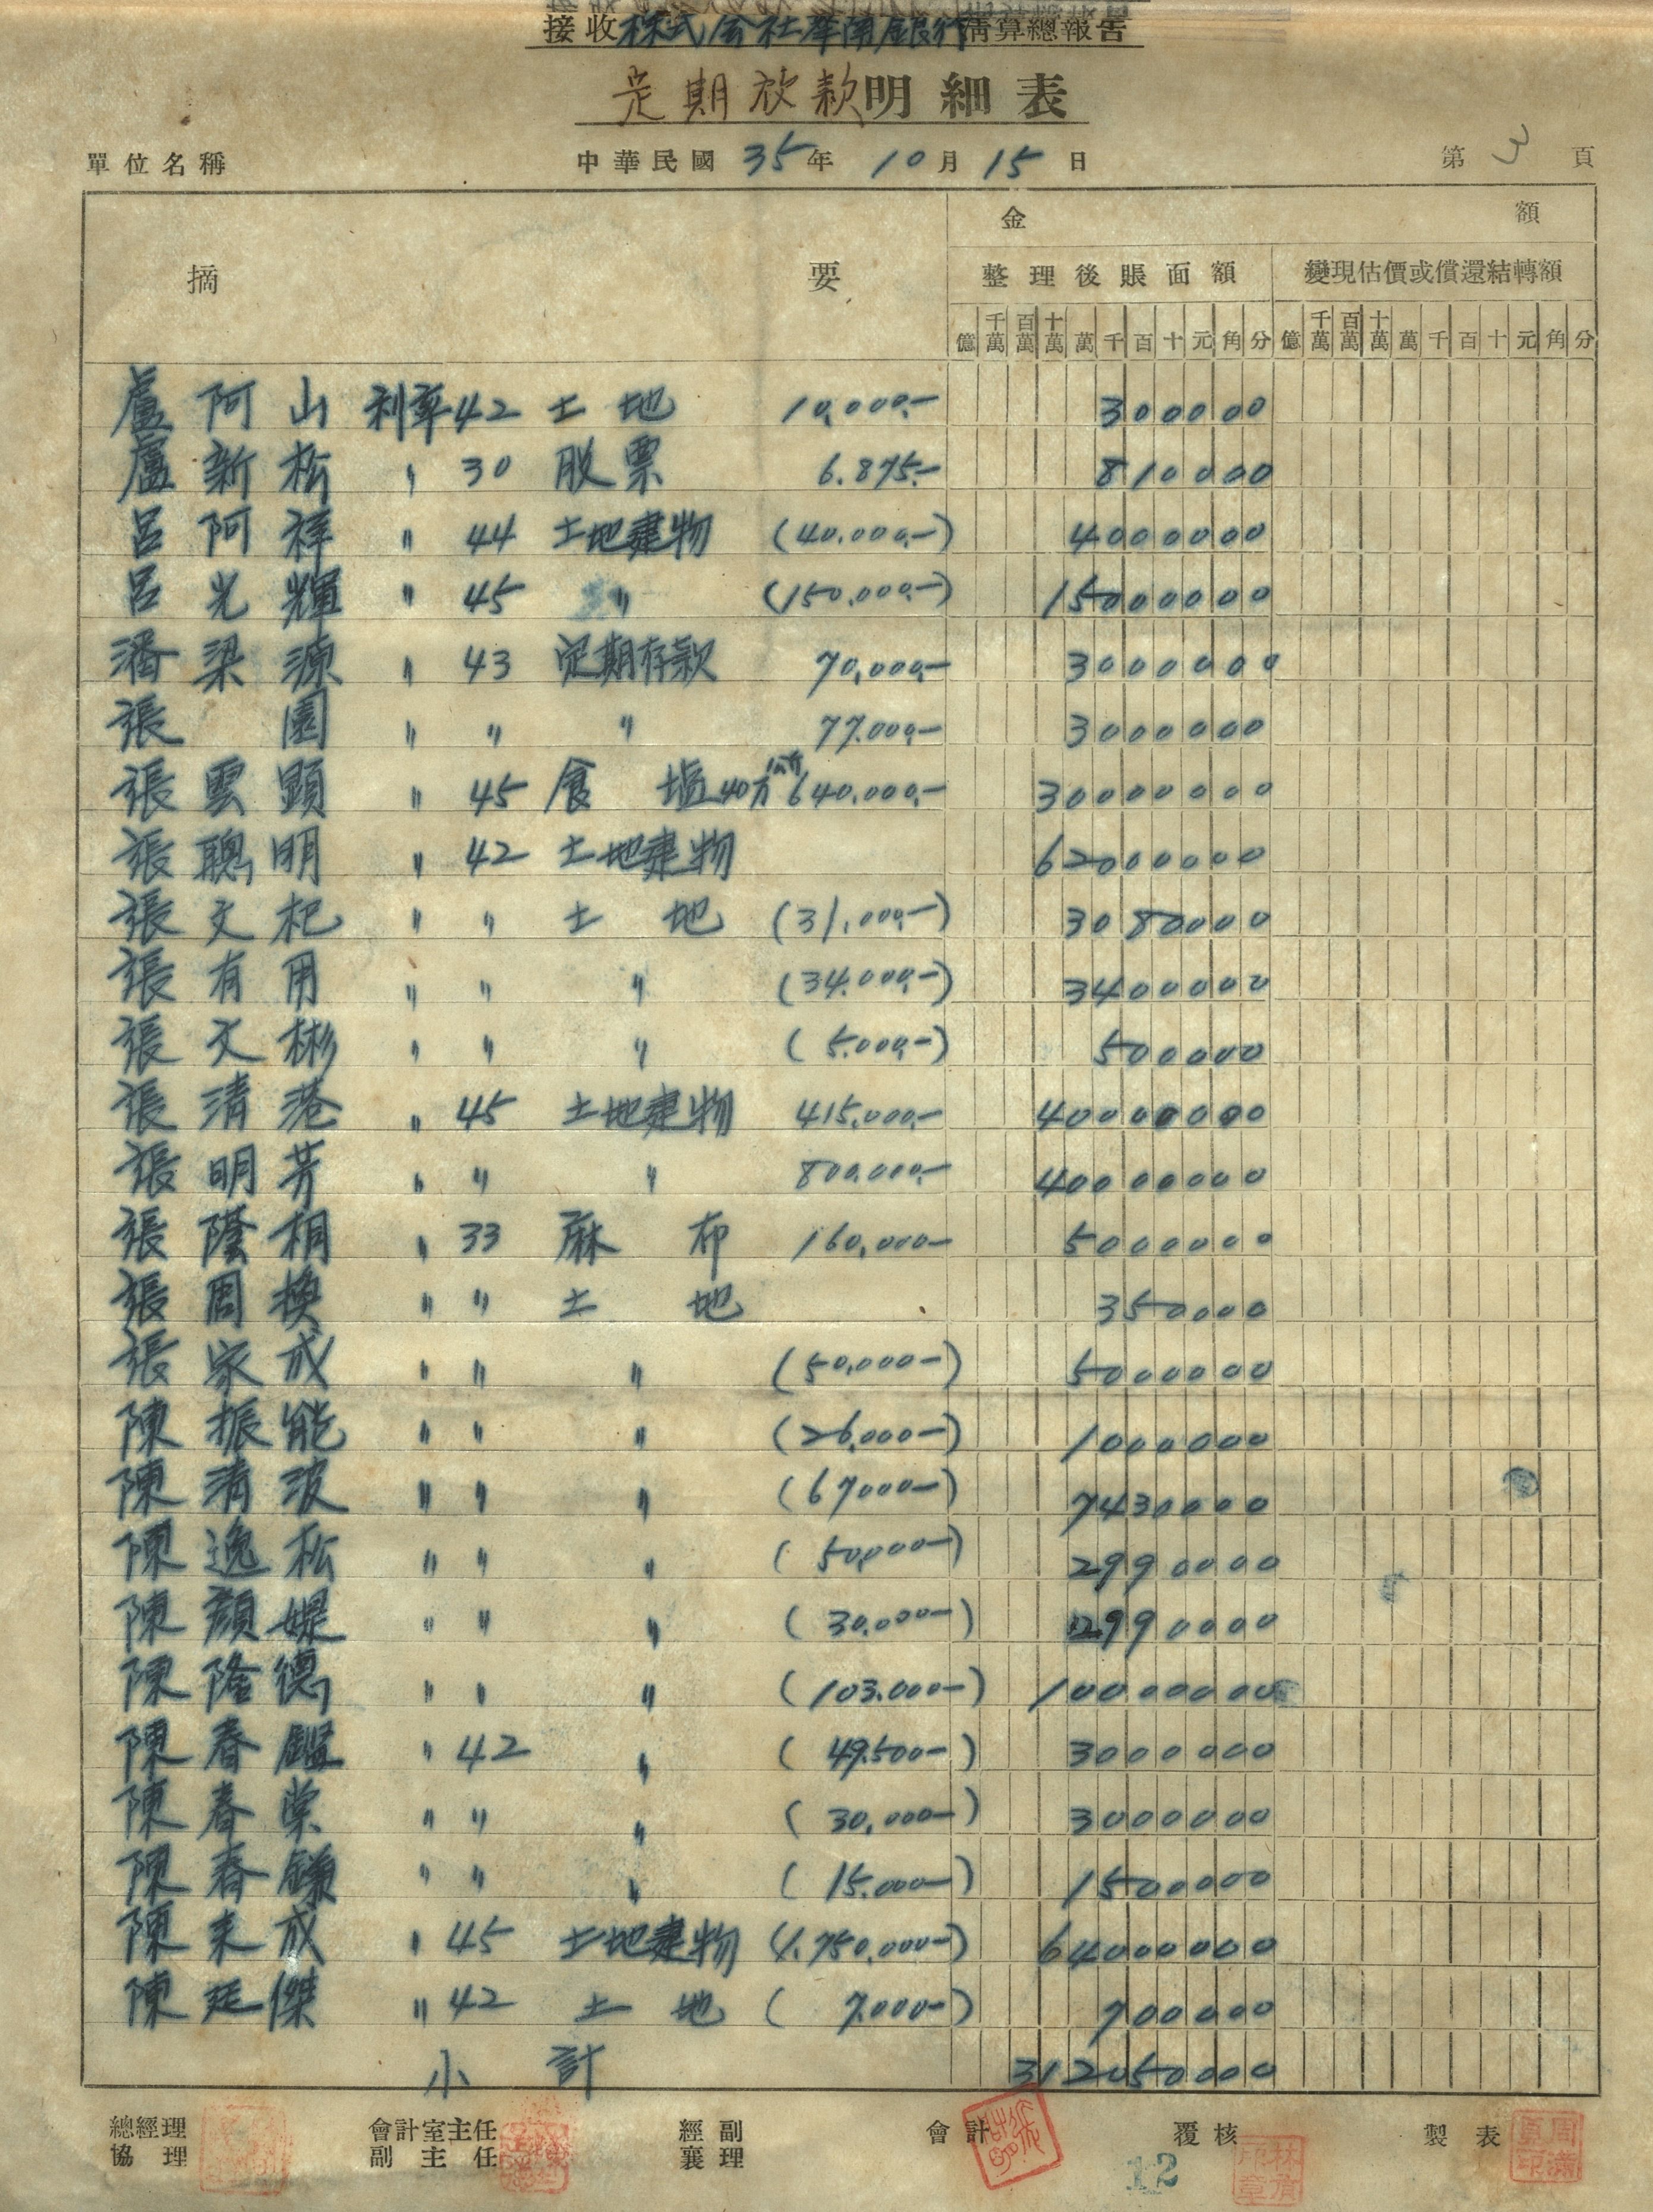 接收株式会社華南銀行清算總報告
定期放款明細表
單位名稱 中華民國 35年 10月 15日 第 3 頁
摘 要 金 額
整理後賬面額 變現估價或償還結轉額
億 千萬 百萬 十萬 萬 千 百 十 元 角 分 億 千萬 百萬 十萬 萬 千 百 十 元 角 分
盧阿山 利率42 土地 10,000.- 300000
盧新松 〃 30 股票 6.875.- 810000
呂阿祥 〃 44 土地建物 (40.000.-) 4000000
呂光輝 〃 45 〃 (150.000.-) 15000000
潘梁源 〃 43 定期存款 70,000.- 3000000
張園 〃 〃 〃 77.000.- 3000000
張雲顕 〃 45 食塩40万 640.000.- 30000000
張聰明 〃 42 土地建物 62000000
張文杞 〃 〃 土地 (31.000.-) 3080000
張有用 〃 〃 〃 (34.000.-) 3400000
張文彬 〃 〃 〃 (5.000.-) 500000
張清港 〃 45 土地建物 415.000.- 40000000
張明芳 〃 〃 〃 800.000.- 40000000
張隆桐 〃 33 麻布 160,000- 5000000
張周換 〃 〃 土地 350000
張家成 〃 〃 〃 (50,000-) 5000000
陳振能 〃 〃 〃 (26,000-) 1000000
陳清波 〃 〃 〃 (67000-) 7430000
陳逸松 〃 〃 〃 (50,000-) 2990000
陳顏媞 〃 〃 〃 (30.000-) 2990000
陳隆德 〃 〃 〃 (103.000-) 10000000
陳春鑑 〃 42 〃 (49.500-) 3000000
陳春棠 〃 〃 〃 (30,000-) 3000000
陳春鎌 〃 〃 〃 (15.000-) 1500000
陳来成 〃 45 土地建物 (1.750.000-) 64000000
陳廷傑 〃 42 土地 (7.000-) 700000
小計 312050000
總經理 會計室主任 經副 會計 覆核 製表
協理 副主任 襄理
12